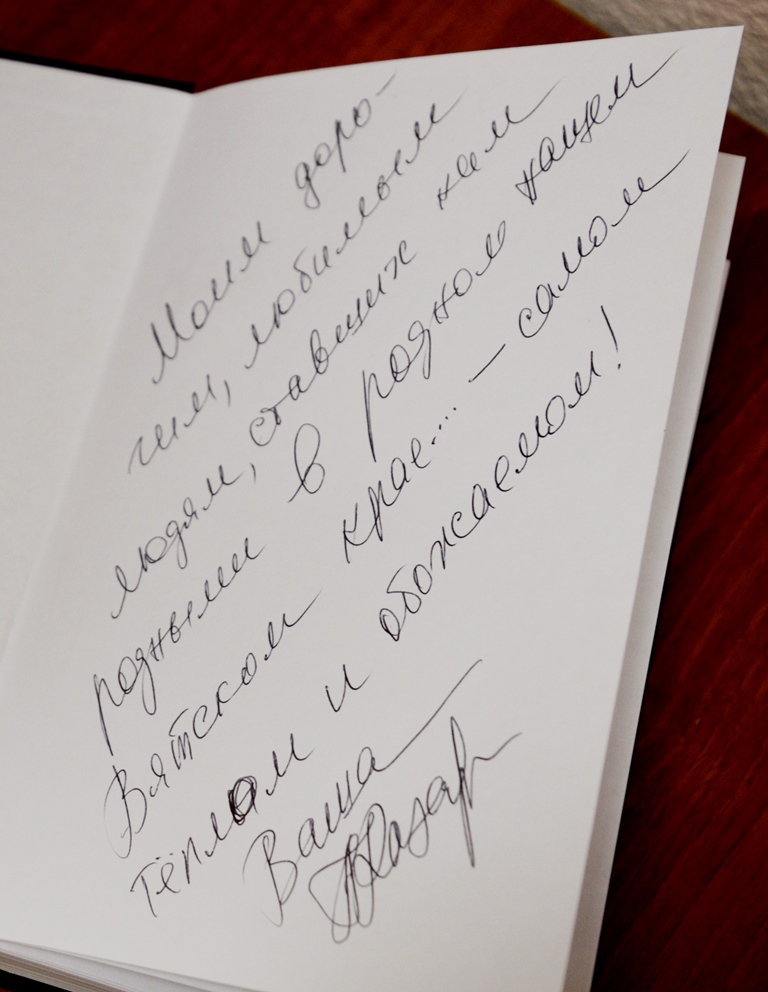 Моим доро-
гим, любимым
людям, ставших нам
родными в родном нашем
Вятском крае.... – самом
тёплом и обожаемом!
Ваша